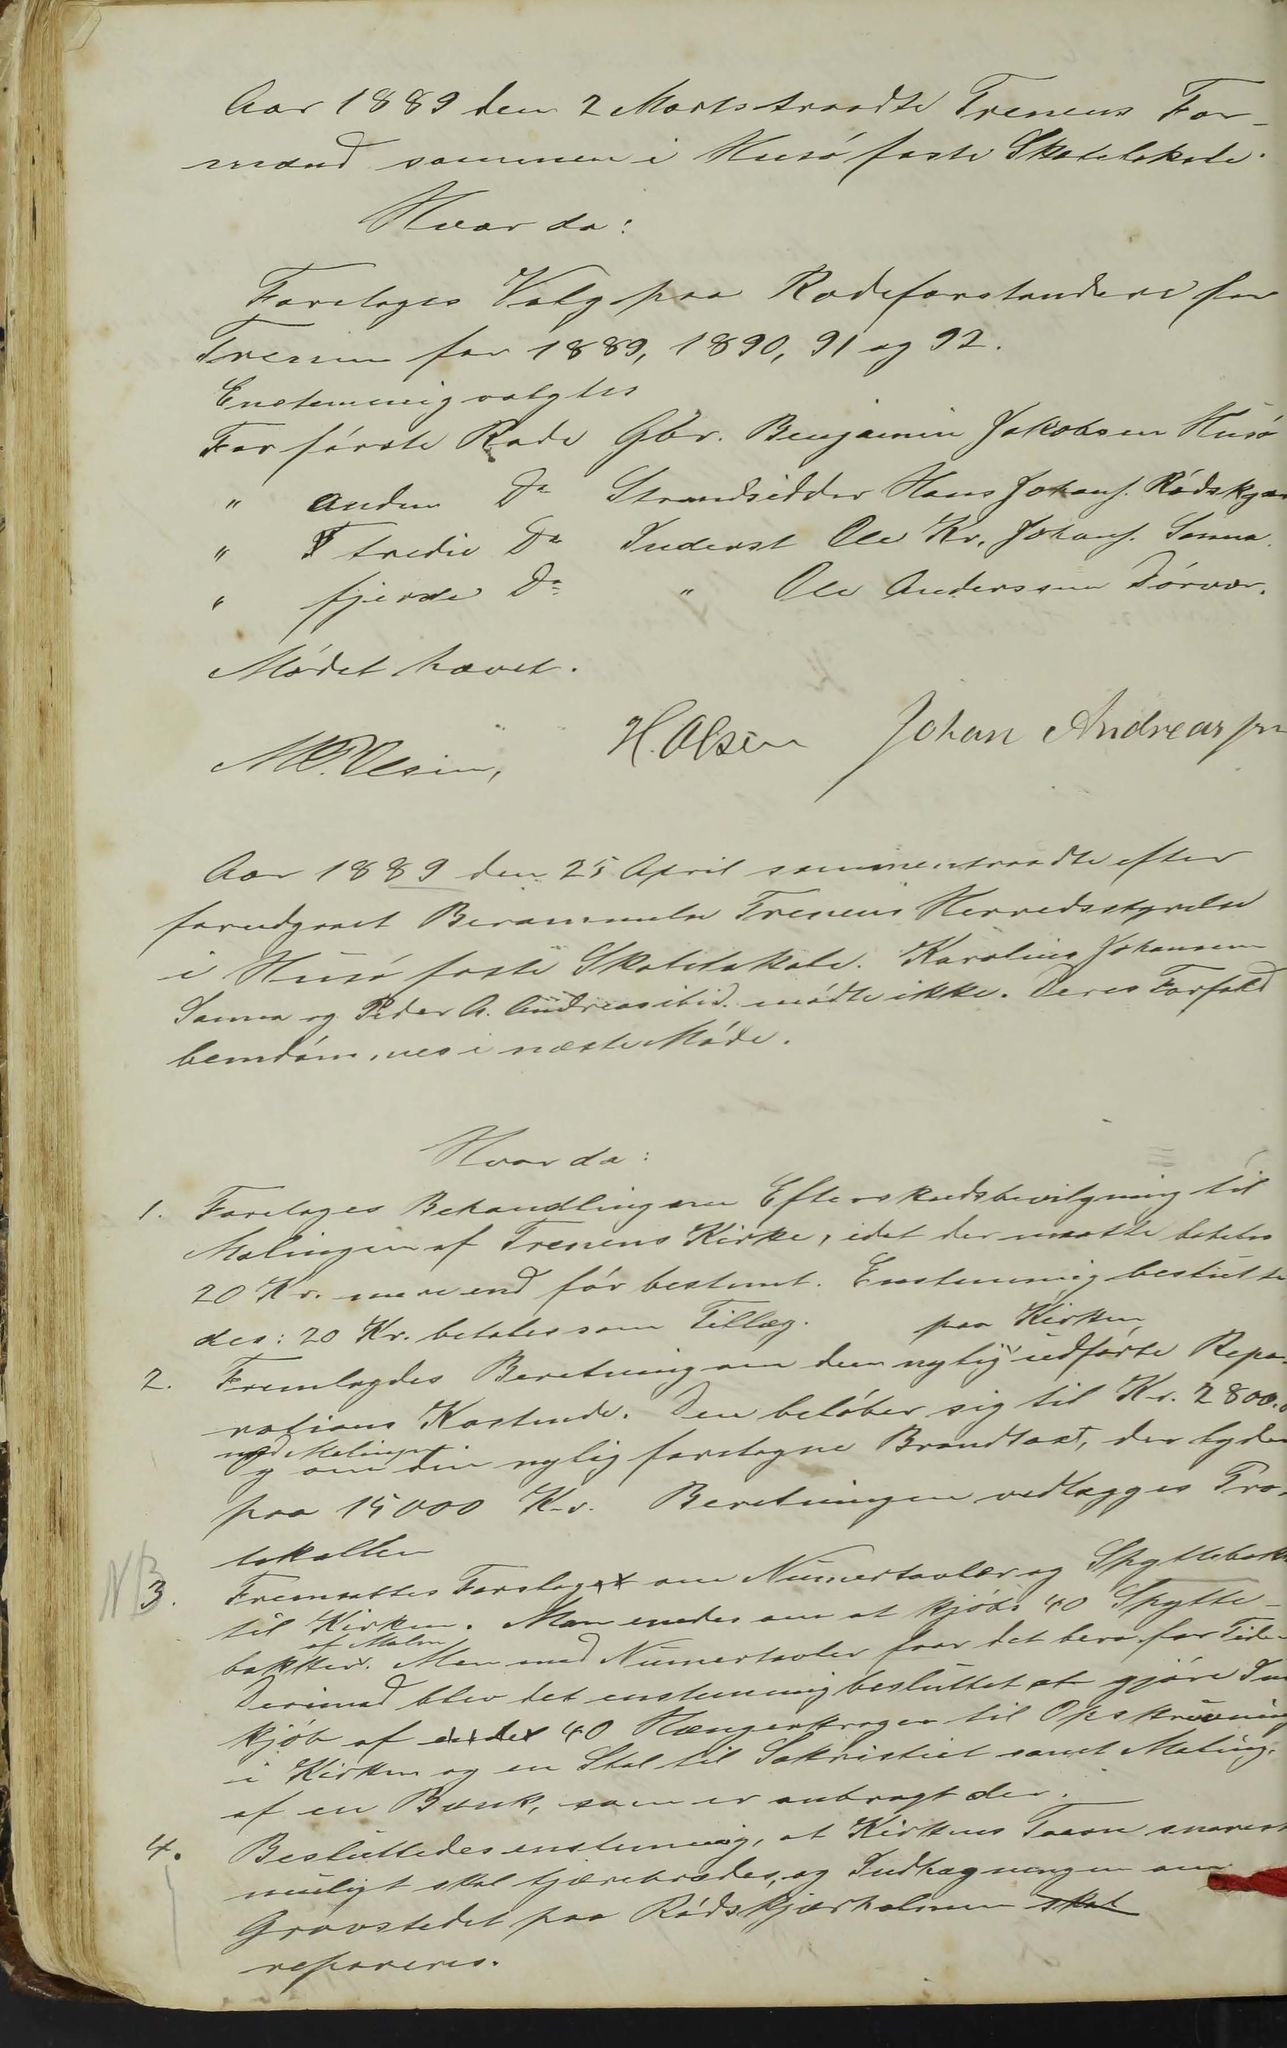 Aar 1889 den 2 Marts traadte Trenens For-
mænd sammen i Husø faste Skolelokale.
Hvor da:
Foretoges Valg paa Rodeforstandere for
Trenen for 1889, 1890, 91 og 92.
Enstemmig valgtes
For første Rode Gbr. Benjamin Jakobsen Husø
" anden Do Strandsidder Hans Johans. Rødskjær
" tredie Do Inderst Ole Kr. Johans. Sanna.
" fjerde Do " Ole Anderssen Dørvær.
Mødet hævet.
M. Olsen, H. Olsen Johan Andreassen
Aar 1889 den 25 April sammentraadte efter
forudgaaet Berammelse Trenens Herredsstyrelse
i Husø faste Skolelokale. Karolius Johansen
Sanna og Peder A. Andreas ibid. mødte ikke. Deres Forfald
bemdømmes i næste Møde.
Hvor da:
1. Foretoges Behandling om Efterskudsbevilgning til
Malingen af Trenens Kirke, idet der maatte betales
20 Kr. mere end før bestemt. Enstemmig beslutte
des: 20 Kr. betales som Tillæg.
2. Fremlagdes Beretning om den nylig paa Kirken udførte Repa-
rations Kostende. Den beløber sig til Kr. 2800.0
med Malingen
og om din nylig foretagne Brandtaxt, der lyder
paa 15000 Kr. Beretningen vedlægges Pro-
tokollen
NB
3. Fremsattes Forslag om Numertavler og Spyttebakker
til Kirken. Man enedes om at kjøbe 40 Spytte-
bakker af Malm. Men med Numertavler faar det bero for Tiden
Derimod blev det enstemmig besluttet at gjøre Ind
kjøb af 40 Hængerkroger til Opskruvning
i Kirken og en Stol til Sakristiet samt Maling
af en Bænk, som er anbragt der.
4. Besluttedes enstemmig, at Kirkens Taarn snarest
muligt skal tjærebredes, og Indhægningen om
Gravstedet paa Rødskjærholmen skal
repareres.